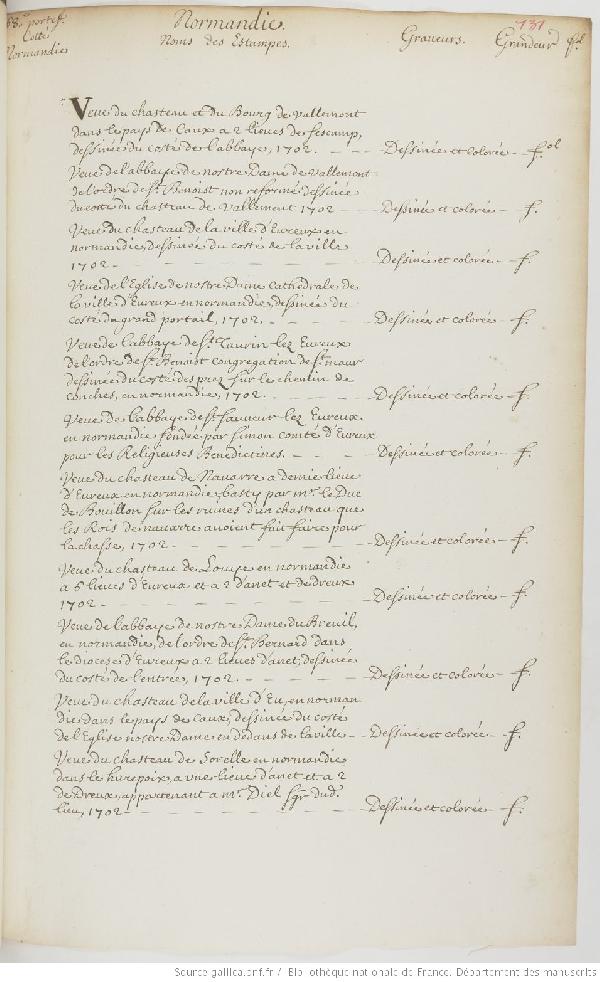 68.e portef.
Cotte
Normandie
Normandie.
Noms des Estampes.
Graveurs.
Grandeur
131
Veue du chasteau et du Bourg de Vallemont
dans le pays de Caux a 2 lieues de fescamp,
dessinée du costé de l'abbaye, 1702. - - - Dessinée et colorée - fol
Veue de l'abbaye de nostre Dame de Vallemont
de l'ordre de St. Benoist non reformé dessinée
du costé du chasteau de Vallement 1702 - - Dessinée et colorée - f.
Veue du chasteau de la ville d'Eureux en
normandie, dessinée du costé de la ville
1702. - - - - - Dessinée et colorée - f.
Veue de l'Eglise de nostre Dame Cathédrale, de
la ville d'Eureux en normandie, dessinée du
costé du grand portail, 1702. - - - - Dessinée et colorée - f.
Veue de l'abbaye de St. Taurin lez Eureux
de l'ordre de St. Benoist congregation de St. maur
dessinée du costé des prez sur le chemin de
conches, en normandie, 1702. - - - - Dessinée et colorée - f.
Veue de l'abbaye de St. Sauueur lez Eureux
en normandie fondée par simon comte d'Eureux
pour les Religieuses Benedictines. - - - - Dessinée et colorée - f.
Veue du chasteau de Nauarre a demie lieue
d'Eureux en normandie, basty par mr. le Duc
de Bouillon sur les ruines d'un chasteau que
les Rois de nauarre auoient fait faire pour
la chasse, 1702. - - - - - Dessinée et colorée - f.
Veue du chasteau de Louye en normandie
a 5 lieues d'Eureux et a 2 d'anet et de dreux
1702 - - - - - - Dessinée et colorée - f.
Veue de l'abbaye de nostre Dame du Breuil,
en normandie, de l'ordre de St. Bernard dans
le diocese d'Eureux a 2 lieues d'anet, dessinée
du costé de l'entrée, 1702. - - - - Dessinée et colorée - f.
Veue du chasteau de la ville d'Eu, en norman
die dans le pays de Caux, dessinée du costé
de l'Eglise nostre Dame en dedans de la ville - - Dessinée et colorée - f.
Veue du chasteau de Sorelle en normandie
dans le hurepoix, a vne lieue d'anet et a 2
de Dreux, appartenant a mr. Diel sgr. dud.
lieu, 1702 - - - - - - Dessinée et colorée - f.
Source gallica.bnf.fr / Bibliothèque nationale de France. Département des manuscrits